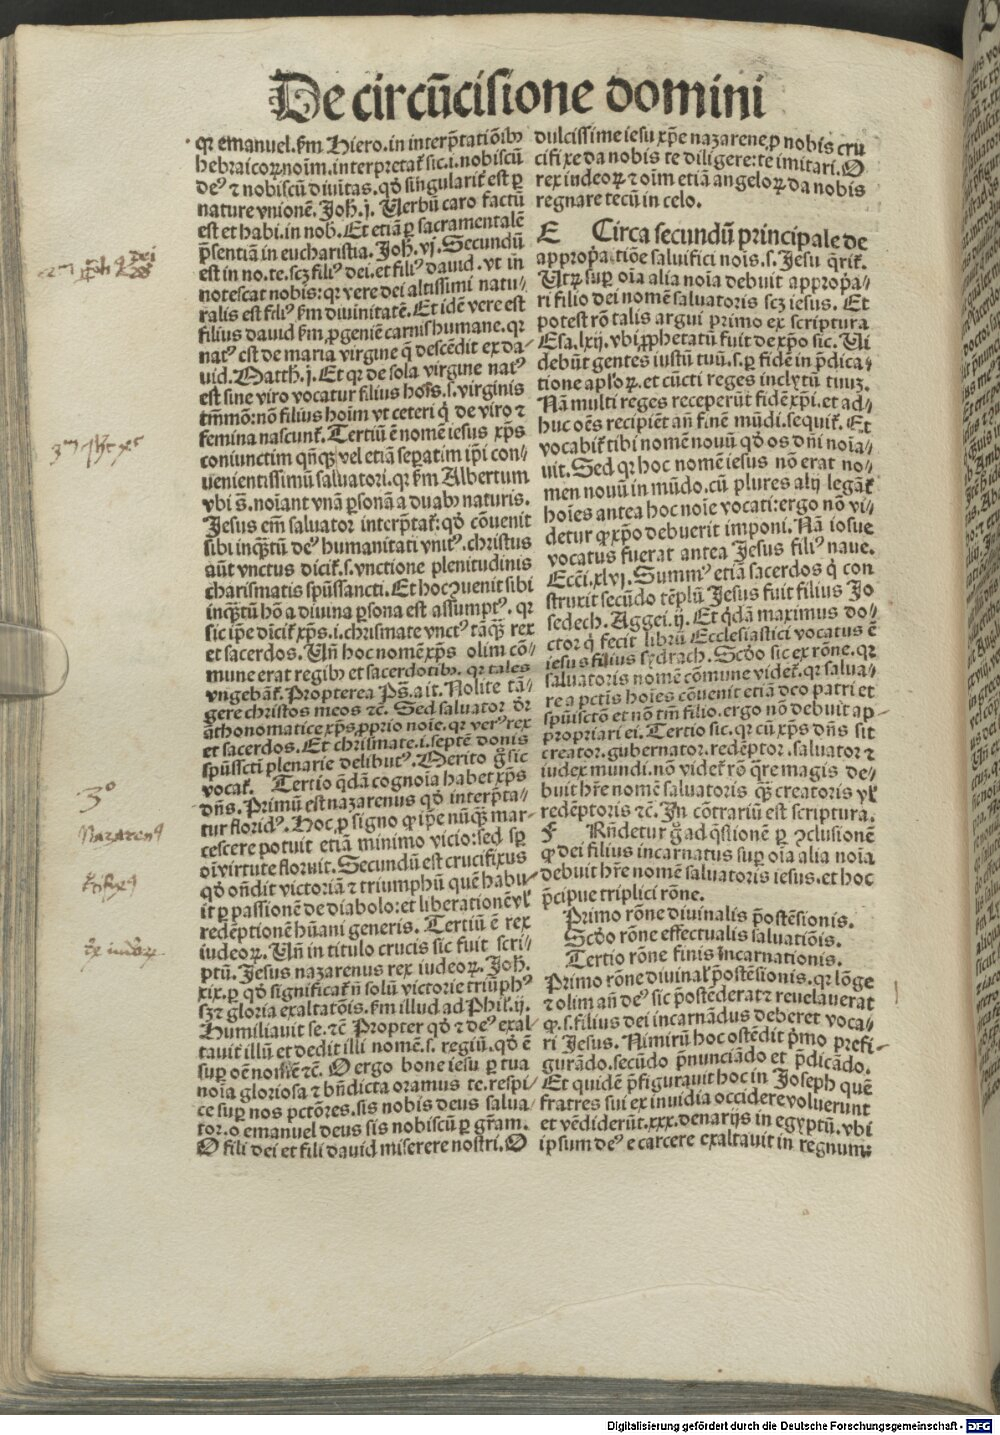 De circūcisione domini
qꝛ emanuel. ẜm Hiero. in interp̄tatiōibꝰ
hebraicoꝝ noīm. interpretat᷑ sic .i. nobiscū
deꝰ ⁊ nobiscū diuītas. qd̓ singularit᷑ est ꝑ
nature vnionē. Joh̄. j. Uerbū caro factū
est et habi. in nob̄. Et etiā ꝑ sacramentalē
p̄sentiā in eucharistia. Joh̄. vj. Secundū
est in no. te. scꝫ filiꝰ dei. et filiꝰ dauid. vt in
notescat nobis: qꝛ vere dei altissimi natu⸗
ralis est filiꝰ ẜm diuinitatē. Et idē vere est
filius dauid ẜm ꝓgeniē carnis humane. qꝛ
natꝰ est de maria virgine q̄ descēdit ex da⸗
uid. Matth̄. j. Et qꝛ de sola virgine natꝰ
est sine viro vocatur filius hoīs .s. virginis
tm̄mō: nō filius hoīm vt ceteri q̇ de viro ⁊
femina nascunt᷑. Tertiū ē nomē iesus xp̄s
coniunctim qn̄qꝫ vel etiā sepatim ip̄i con⸗
uenientissimū saluatori. qꝛ ẜm Albertum
vbi s̄. noīant vnā ꝑsonā a duabꝰ naturis.
Jesus em̄ saluator interp̄tat᷑: qd̓ cōuenit
sibi inqꝫtū deꝰ humanitati vnitꝰ. christus
aūt vnctus dicit᷑ .s. vnctione plenitudinis
charismatis spūssancti. Et hoc ꝯuenit sibi
inqꝫtū hō a diuina ꝑsona est assumptꝰ. qꝛ
sic ip̄e dicit᷑ xp̄s .i. chrismate vnctꝰ tāqꝫ rex
et sacerdos. Un̄ hoc nomē xp̄s olim cō⸗
mune erat regibꝰ et sacerdotibꝰ. qꝛ tales
vngebāt᷑. Propterea Ps̄. ait. Nolite tā⸗
gere christos meos ⁊c̄. Sed saluator dr̄
āthonomatice xp̄s ꝓprio noīe. qꝛ verꝰ rex
et sacerdos. Et chrismate .i. septē donis
spūssctī plenarie delibutꝰ. Merito g̊ sic
vocat᷑. Tertio q̄dā cognoīa habet xp̄s
dn̄s. Primū est nazarenus qd̓ interp̄ta⸗
tur floridꝰ. Hoc ꝓ signo ꝙ ip̄e nūqꝫ mar⸗
cescere potuit etiā minimo vicio: sed sꝑ
oī virtute floruit. Secundū est crucifixus
qd̓ on̄dit victoriā ⁊ triumphū quē habu⸗
it ꝑ passionē de diabolo: et liberationē vl̓
redēptionē hūani generis. Tertiū ē rex
iudeoꝝ. Un̄ in titulo crucis sic fuit scri⸗
ptū. Jesus nazarenus rex iudeoꝝ. Joh̄.
xix. ꝑ qd̓ significat᷑ nō solū victorie triūphꝰ
sꝫ ⁊ gloria exaltatōis. ẜm illud ad Phil̓. ij.
Humiliauit se. ⁊c̄ Propter qd̓ ⁊ deꝰ exal⸗
tauit illū et dedit illi nomē .s. regiū. qd̓ ē
suꝑ oē nomē ⁊c̄. O ergo bone iesu ꝑ tua
noīa gloriosa ⁊ bn̄dicta oramus te. respi⸗
ce suꝑ nos pctōres. sis nobis deus salua⸗
tor. o emanuel deus sis nobiscū ꝑ gr̄am.
O fili dei et fili dauid miserere nostri. O
dulcissime iesu xp̄e nazarene, ꝓ nobis cru
cifixe da nobis te diligere: te imitari. O
rex iudeoꝝ ⁊ oīm etiā angeloꝝ da nobis
regnare tecū in celo.
E Circa secundū principale de
appropa̓tiōe saluifici noīs .s. Jesu q̄rit᷑.
Utꝝ suꝑ oīa alia noīa debuit appropa̓⸗
ri filio dei nomē saluatoris scꝫ iesus. Et
potest rō talis argui primo ex scriptura
Esa. lxij. vbi ꝓphetatū fuit de xp̄o sic. Ui
debūt gentes iustū tuū .s. ꝑ fidē in p̄dica⸗
tione apl̓oꝝ. et cūcti reges inclytū tuuꝫ.
Nā multi reges receperūt fidē xp̄i. et ad⸗
huc oēs recipiēt an̄ finē mūdi. sequit᷑. Et
vocabit᷑ tibi nomē nouū qd̓ os dn̄i noīa⸗
uit. Sed qꝛ hoc nomē iesus nō erat no⸗
men nouū in mūdo. cū plures alij legāt᷑
hoīes antea hoc noīe vocati: ergo nō vi⸗
detur ꝙ xp̄o debuerit imponi. Nā iosue
vocatus fuerat antea Jesus filiꝰ naue.
Ecci̓. xlvj. Summꝰ etiā sacerdos q̇ con
struxit secūdo tēplū Jesus fuit filius Jo
sedech. Aggei. ij. Et q̇dā maximus do⸗
ctor q̇ fecit librū Ecclesiastici vocatus ē
iesus filius sydrach. Scd̓o sic ex rōne. qꝛ
saluatoris nomē cōmune videt᷑. qꝛ salua⸗
re a pctīs hoīes cōuenit etiā deo patri et
spūisctō et nō tm̄ filio. ergo nō debuit ap⸗
propriari ei. Tertio sic. qꝛ cū xp̄s dn̄s sit
creator. gubernator. redēptor. saluator ⁊
iudex mundi. nō videt᷑ rō q̄re magis de⸗
buit hr̄e nomē saluatoris qꝫ̄ creatoris vl̓
redēptoris ⁊c̄. In cōtrariū est scriptura.
F Rn̄detur g̊ ad q̄stionē ꝑ ꝯclusionē
ꝙ dei filius incarnatus suꝑ oīa alia noīa
debuit hr̄e nomē saluatoris iesus. et hoc
p̄cipue triplici rōne.
Primo rōne diuinalis p̄ostēsionis.
Scd̓o rōne effectualis saluatiōis.
Tertio rōne finis incarnationis.
Primo rōne diuinal̓ p̄ostēsionis. qꝛ lōge
⁊ olim an̄ deꝰ sic p̄ostēderat ⁊ reuelauerat
ꝙ .s. filius dei incarnādus deberet voca⸗
ri Jesus. Nimirū hoc ostēdit p̓mo prefi⸗
gurādo. secūdo p̄nunciādo et p̄dicādo.
Et quidē p̄figurauit hoc in Joseph quē
fratres sui ex inuidia occidere voluerunt
et vēdiderūt. xxx. denarijs in egyptū. vbi
ipsum deꝰ e carcere exaltauit in regnum:
3ᵒ
Nazarenꝰ
Digitalisierung gefördert durch die Deutsche Forschungsgemeinschaft - DFG